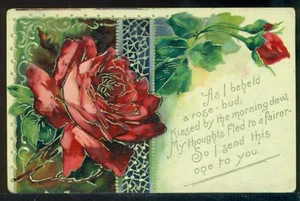 As I beheld
a rose-bud,
Kissed by the morning dew,
My thoughts fled to a fairer-
So I send this
one to you.